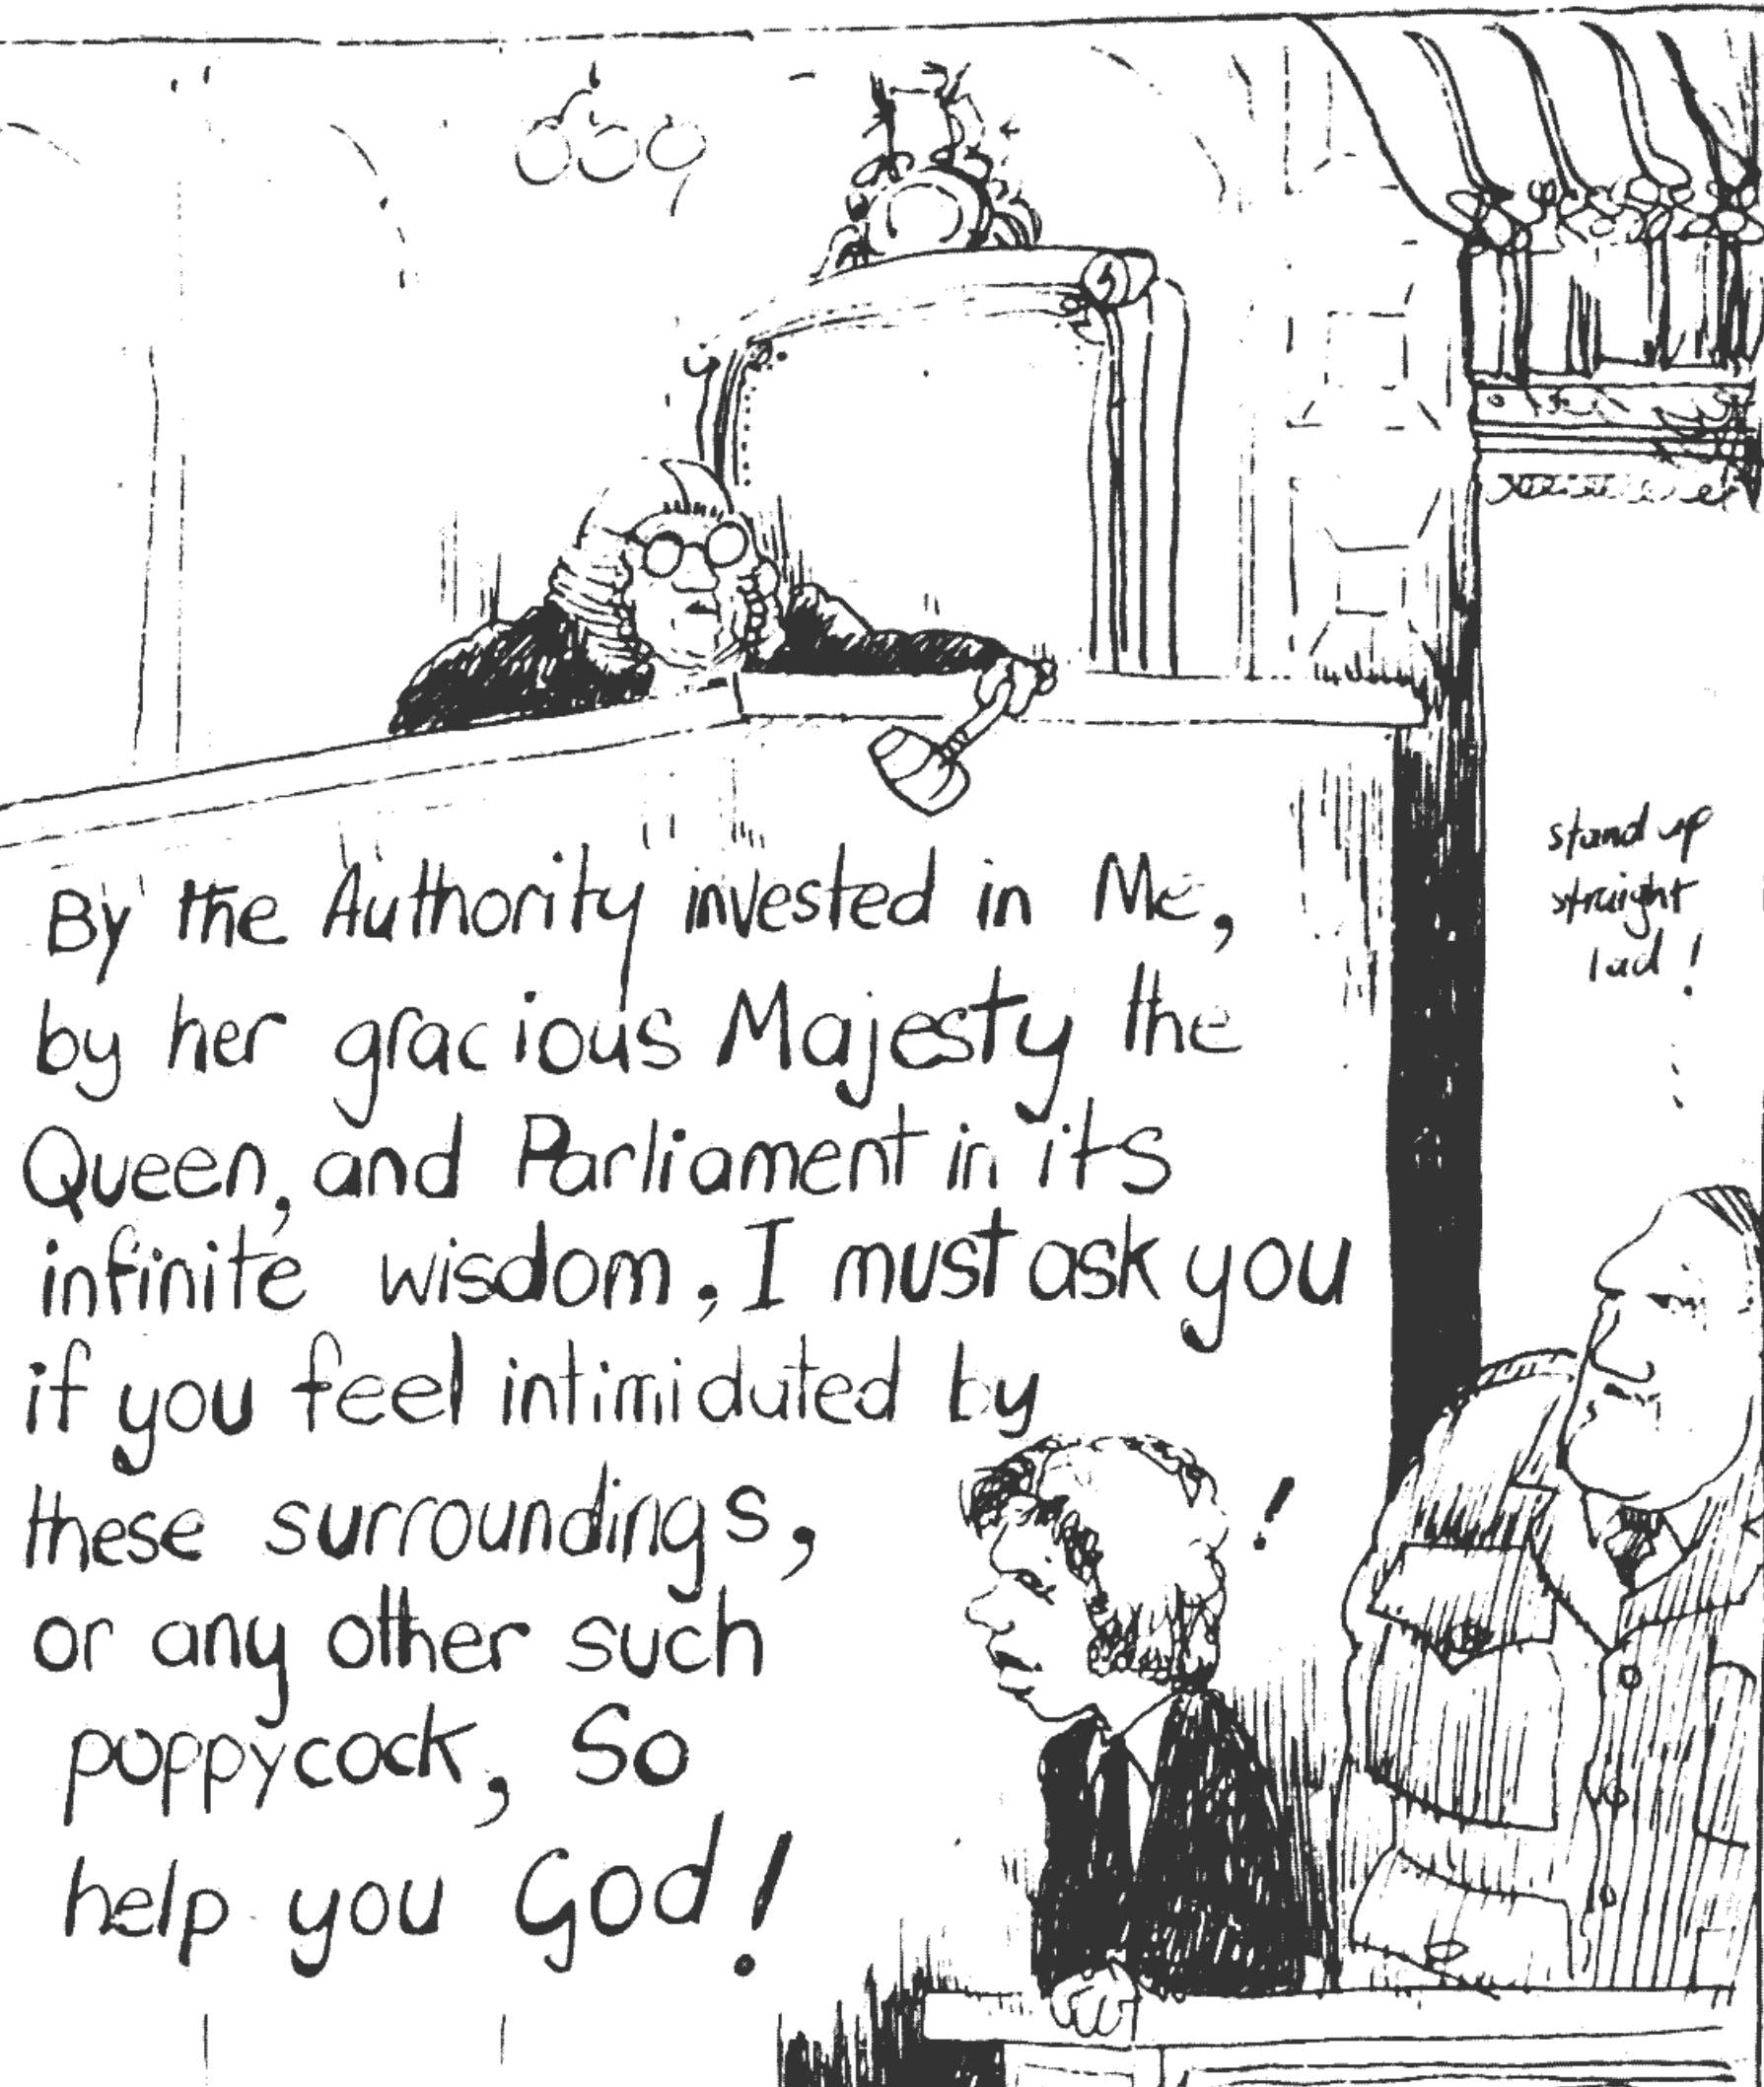 By the Authority invested in Me,
by her gracious Majesty the
Queen, and Parliament in its
infinite wisdom, I must ask you
if you feel intimidated by
these surroundings,
or any other such
poppycock, So
help you God!
stand up
straight
lad!
!